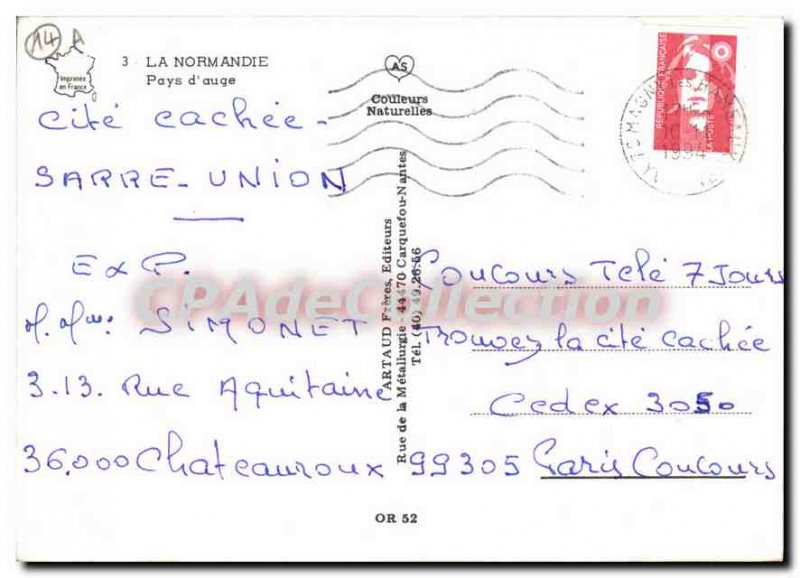 14 A
Imprimée
en France
3 LA NORMANDIE
Pays d'auge
AS
Couleurs
Naturelles
RÉPUBLIQUE FRANÇAISE
LA POSTE
1994
Cité cachée -
SARRE-UNION
Exp.
M. Mme SIMONET
3.13. Rue Aquitaine
36.000 Chateauroux
ARTAUD Frères, Editeurs
Rue de la Métallurgie - 44470 Carquefou-Nantes
Tél. (40) 49.26.56
Concours Télé 7 Jours
Trouvez la cité cachée
Cedex 3050
99305 Paris Concours
OR 52
CPAdeCollection